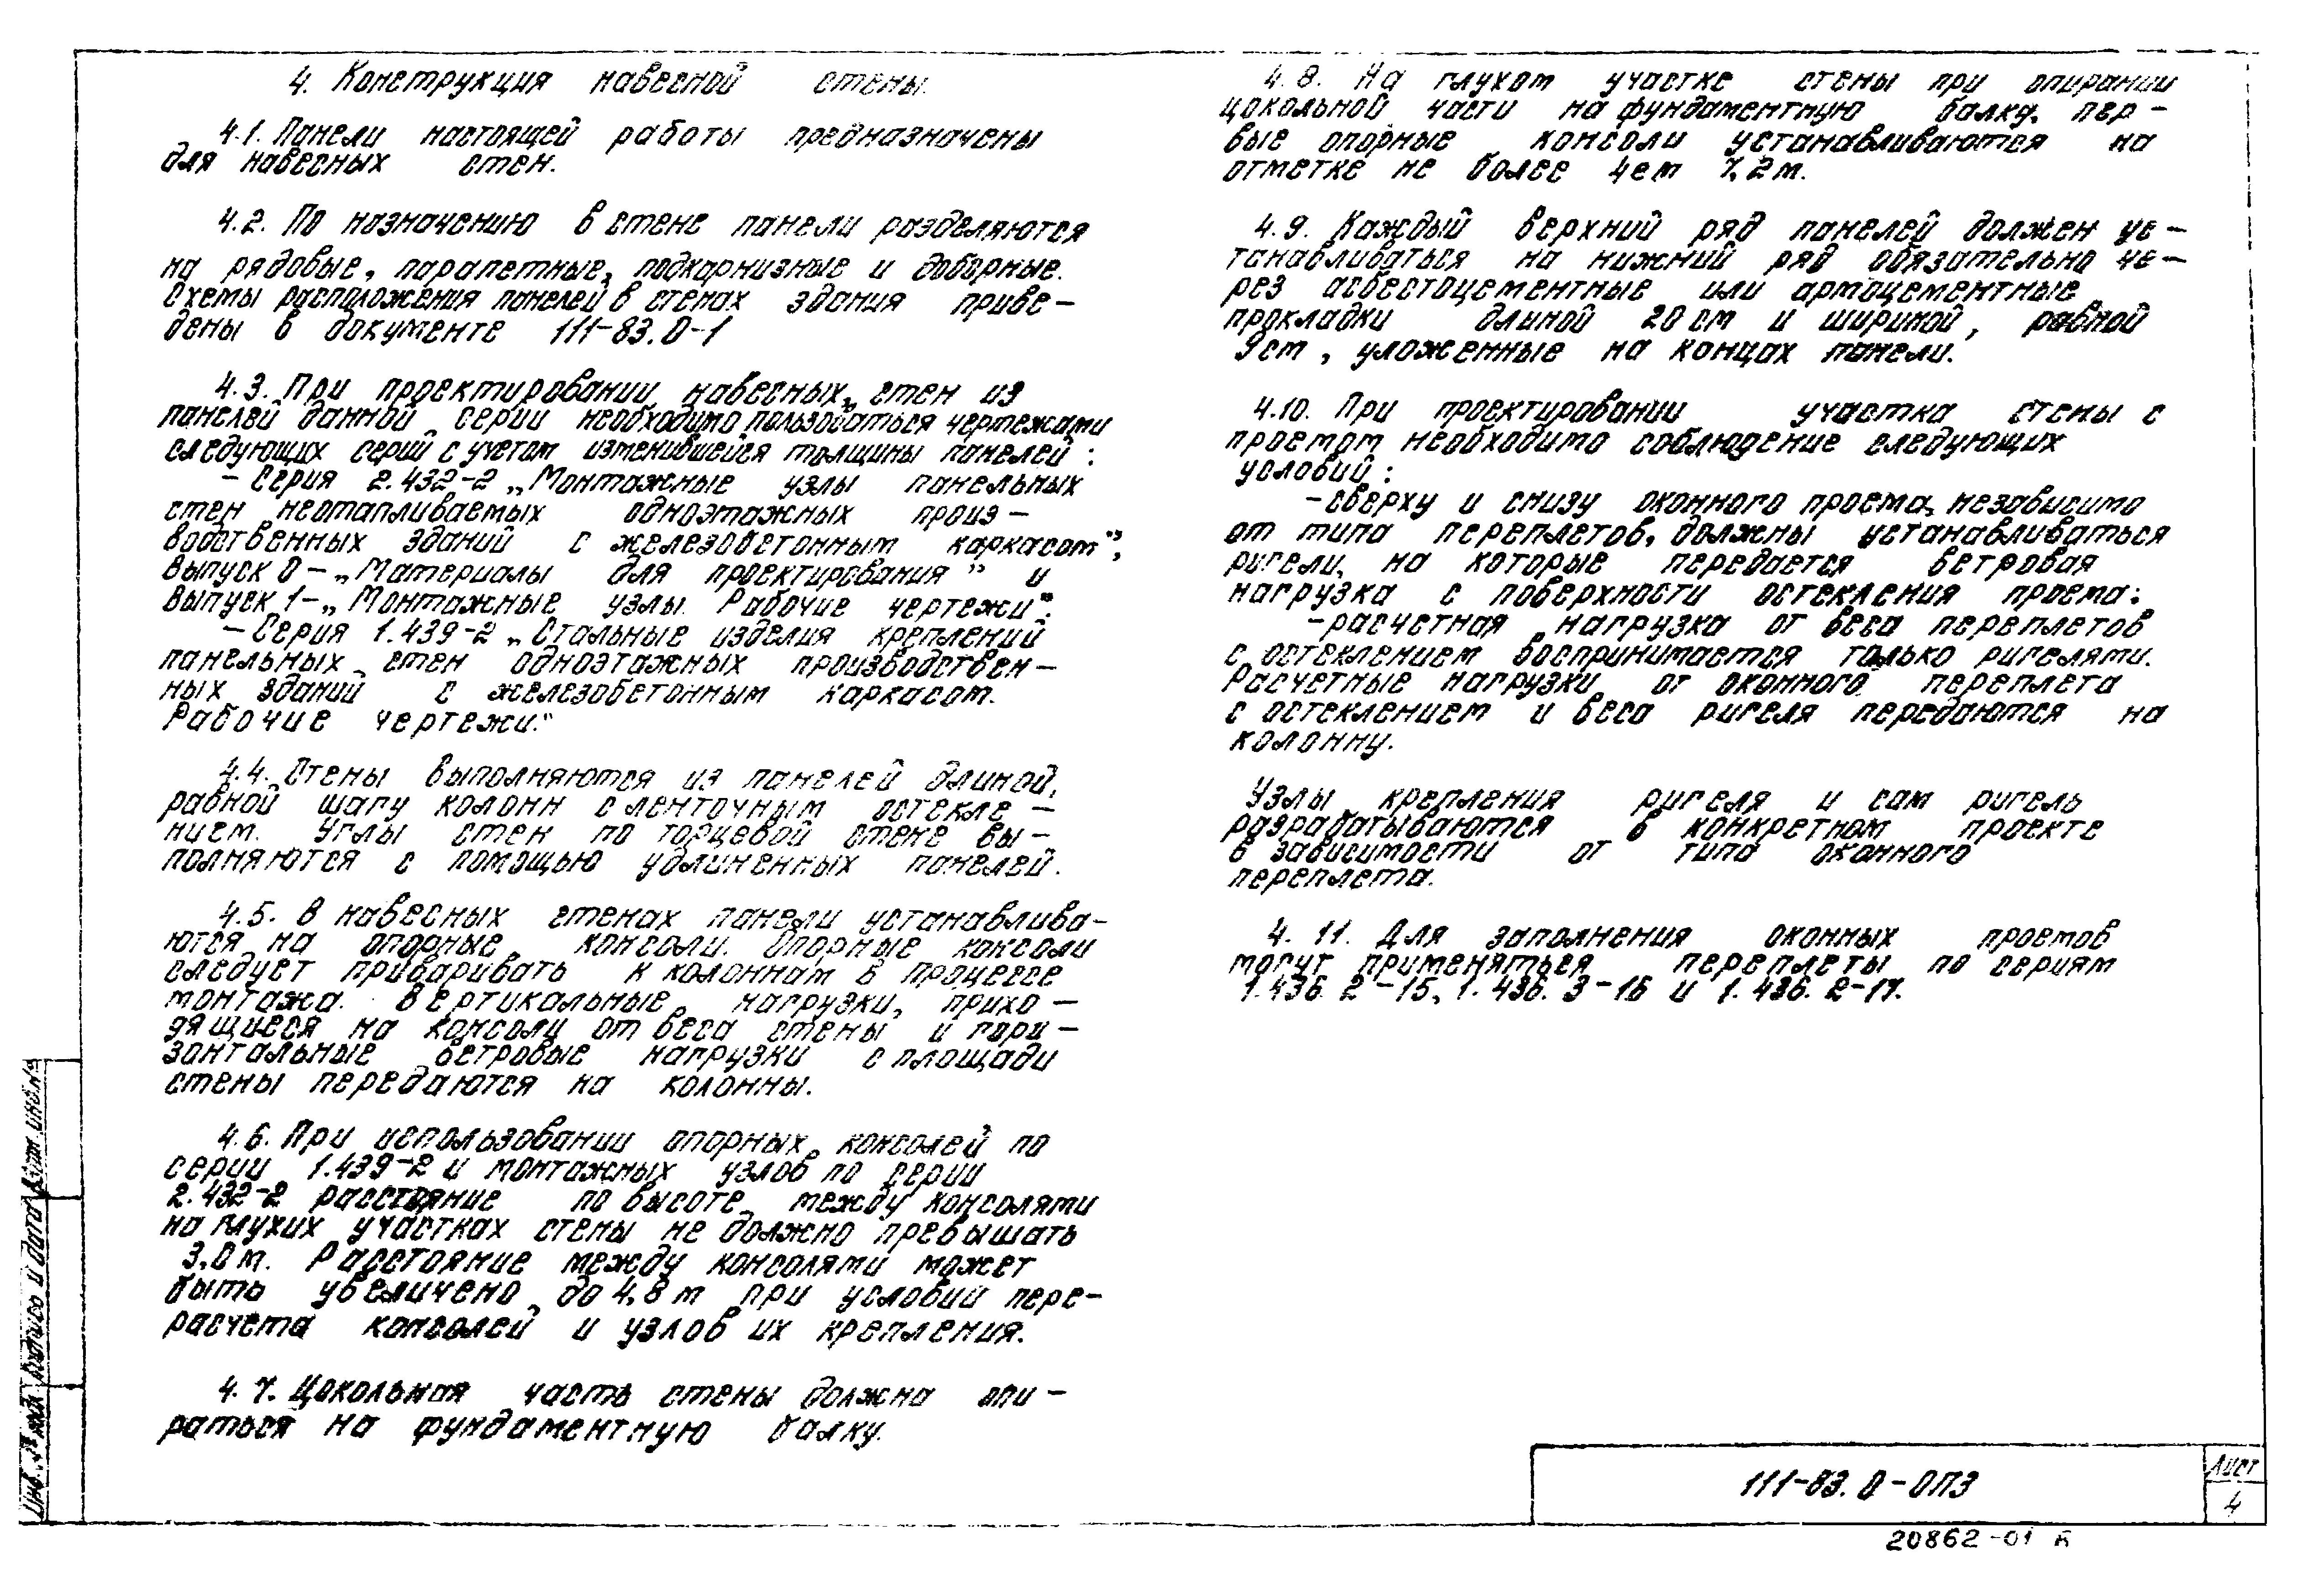 4. Конструкция навесной стены.
4.1. Панели настоящей работы предназначены
для навесных стен.
4.2. По назначению в стене панели разделяются
на рядовые, парапетные, подкарнизные и доборные.
Схемы расположения панелей в стенах здания приве-
дены в документе 111-83.0-1
4.3. При проектировании навесных стен из
панелей данной серии необходимо пользоваться чертежами
следующих серий с учетом изменившейся толщины панелей:
- Серия 2.432-2 „Монтажные узлы панельных
стен неотапливаемых одноэтажных произ-
водственных зданий с железобетонным каркасом",
выпуск 0 - „Материалы для проектирования" и
выпуск 1-„Монтажные узлы. Рабочие чертежи".
- Серия 1.439-2 „Стальные изделия креплений
панельных стен одноэтажных производствен-
ных зданий с железобетонным каркасом.
Рабочие чертежи."
4.4. Стены выполняются из панелей длиной,
равной шагу колонн с ленточным остекле-
нием. Углы стен по торцевой стене вы-
полняются с помощью удлиненных панелей.
4.5. В навесных стенах панели устанавлива-
ются на опорные консоли. Опорные консоли
следует приваривать к колоннам в процессе
монтажа. Вертикальные нагрузки, прихо-
дящиеся на консоли от веса стены и гори-
зонтальные ветровые нагрузки с площади
стены передаются на колонны.
4.6. При использовании опорных консолей по
серии 1.439-2 и монтажных узлов по серии
2.432-2 расстояние по высоте между консолями
на глухих участках стены не должно превышать
3.0 м. Расстояние между консолями может
быть увеличено до 4,8 м при условии пере-
расчета консолей и узлов их крепления.
4.7. Цокольная часть стены должна опи-
раться на фундаментную балку.
4.8. На глухом участке стены при опирании
цокольной части на фундаментную балку, пер-
вые опорные консоли устанавливаются на
отметке не более чем 7,2 м.
4.9. Каждый верхний ряд панелей должен ус-
танавливаться на нижний ряд обязательно че-
рез асбестоцементные или армоцементные
прокладки длиной 20 см и шириной, равной
9 см, уложенные на концах панели.
4.10. При проектировании участка стены с
проемом необходимо соблюдение следующих
условий:
- сверху и снизу оконного проема, независимо
от типа переплетов, должны устанавливаться
ригели, на которые передается ветровая
нагрузка с поверхности остекления проема;
- расчетная нагрузка от веса переплетов
с остеклением воспринимается только ригелями.
Расчетные нагрузки от оконного переплета
с остеклением и веса ригеля передаются на
колонну.
Узлы крепления ригеля и сам ригель
разрабатываются в конкретном проекте
в зависимости от типа оконного
переплета.
4.11. Для заполнения оконных проемов
могут применяться переплеты по сериям
1.436.2-15, 1.436.3-16 и 1.436.2-17.
Инв. № подл. Подпись и дата Взам. инв. №
111-83.0-0ПЗ
Лист
4
20862-01